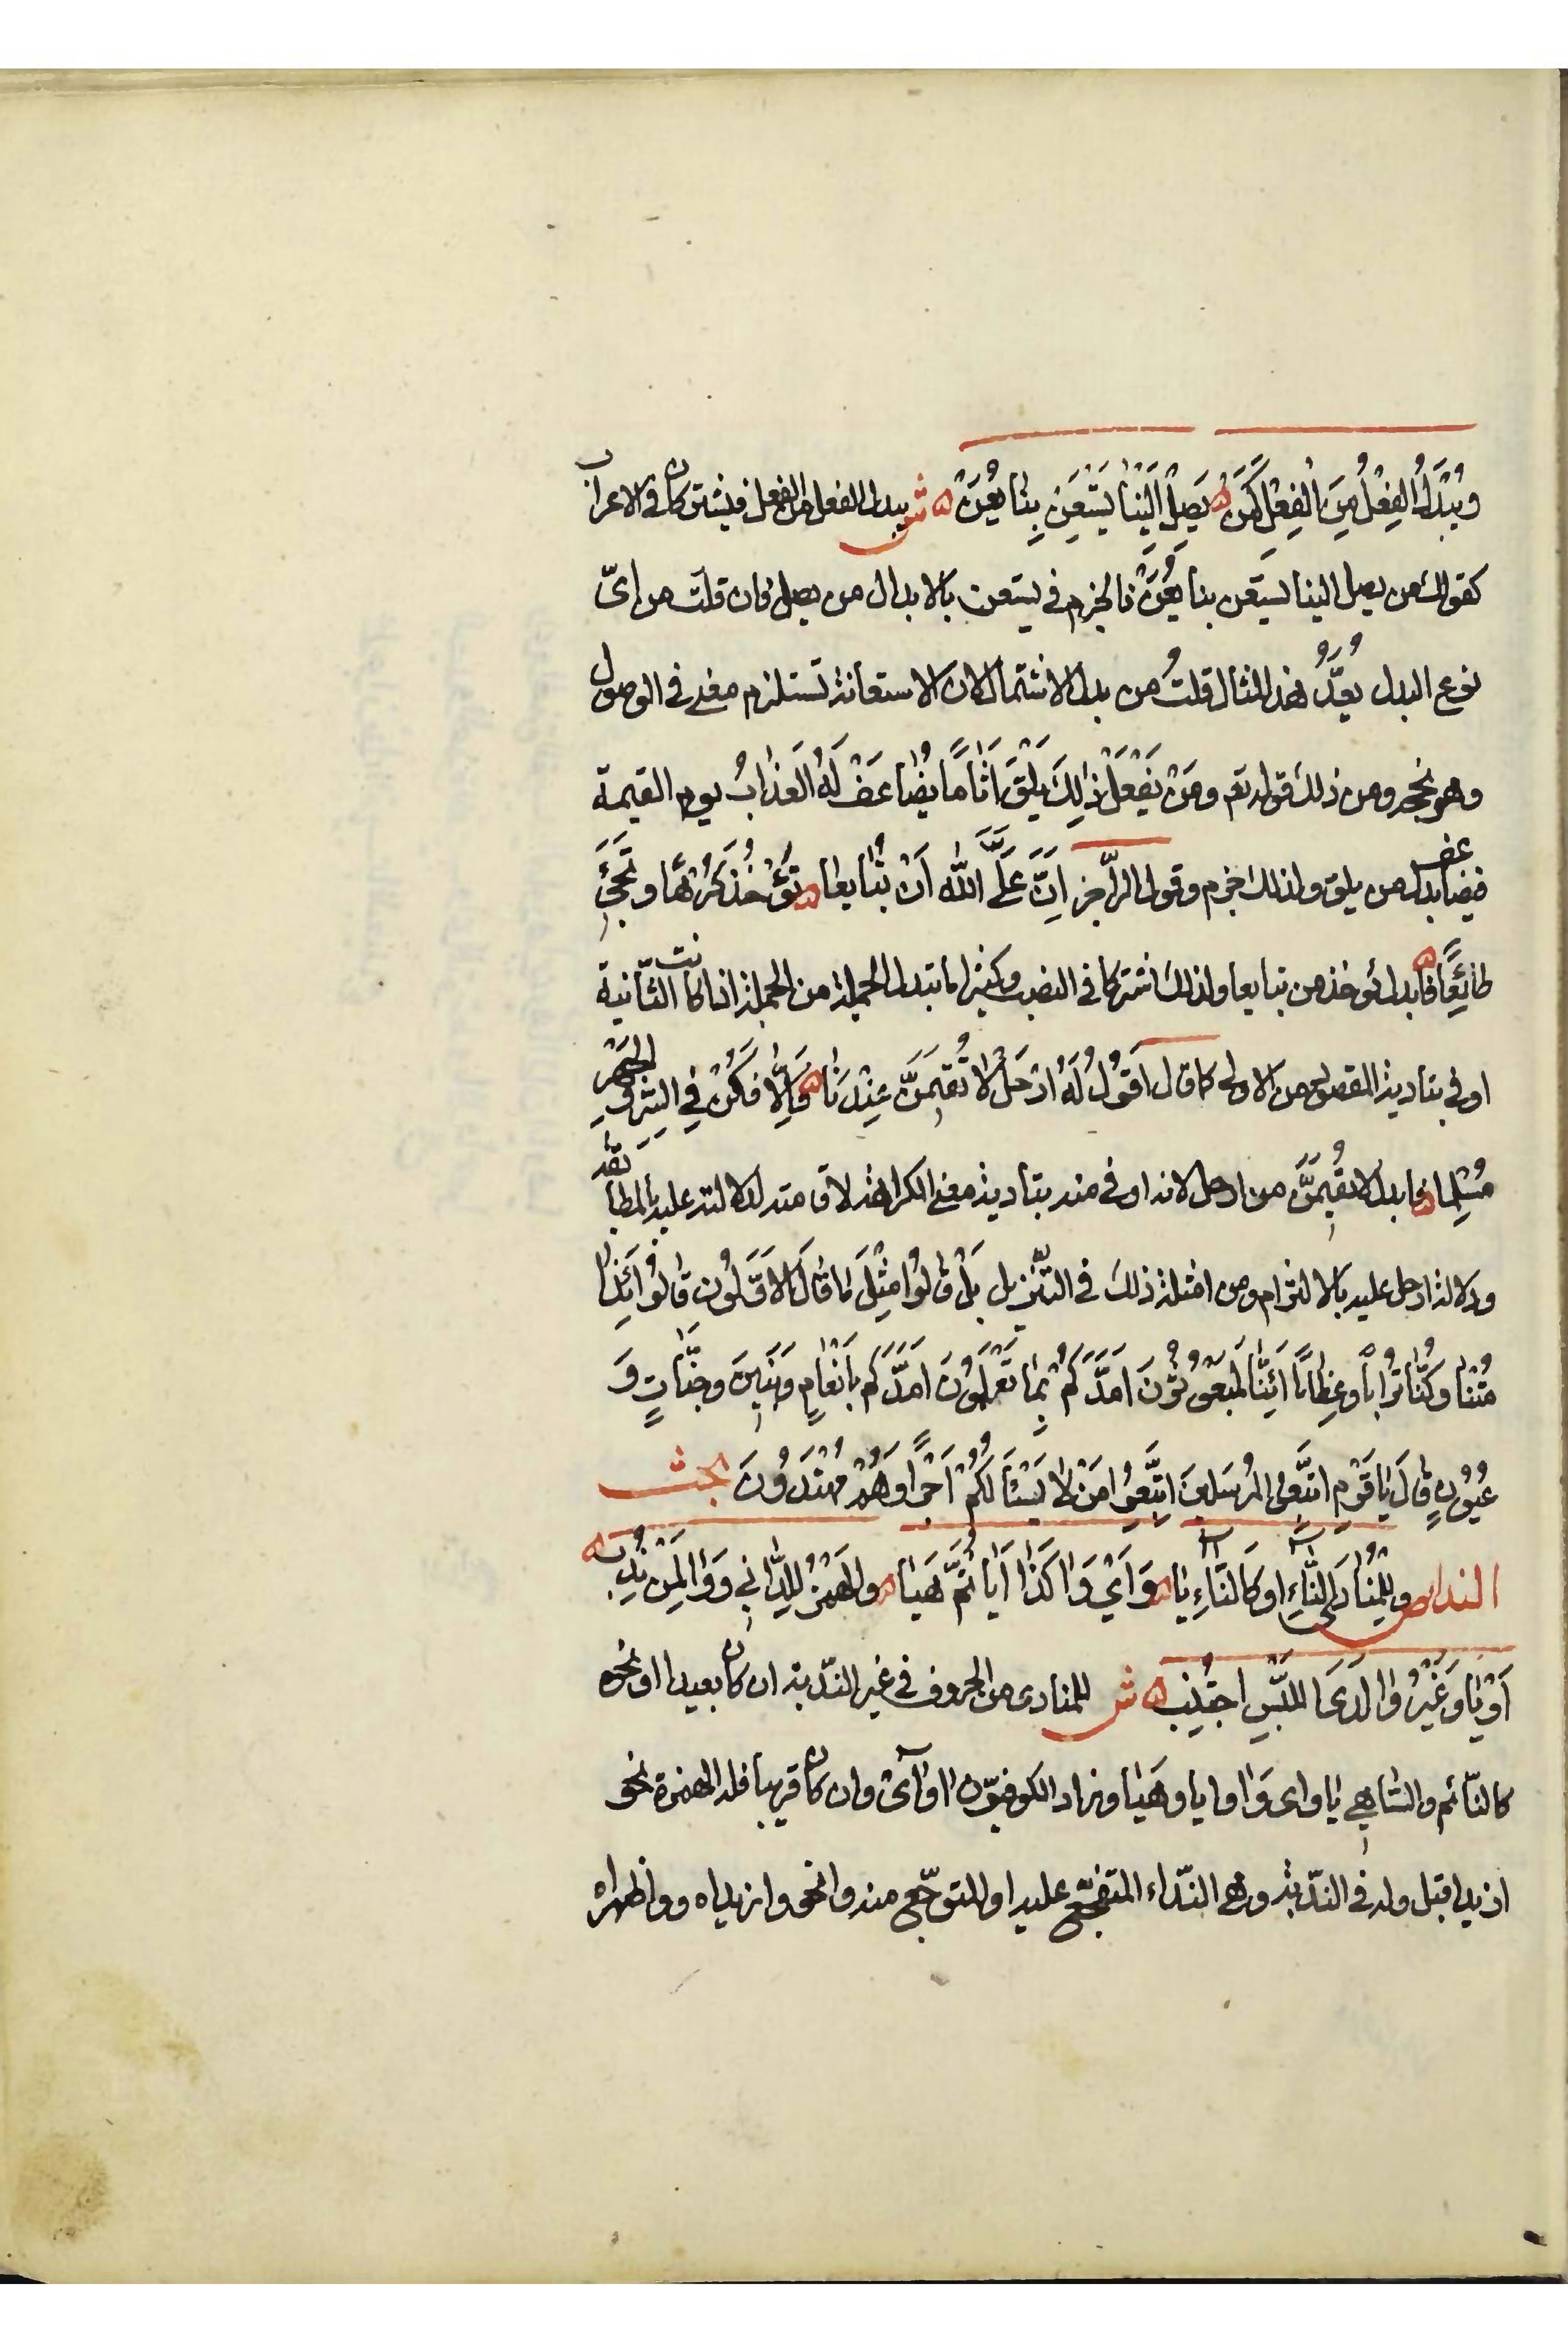 وَيُبْدَلُ الفِعْلُ مِنَ الفِعْلِ كَمَنْ ه يَصِلْ اِلَيْنَا يَسْتَعِنْ بِنَا يُعَنْ ه ش يبدل الفعل من الفعل فيشتركان في الاعراب
كقولك من يصل الينا يستعن بنا يُعَنْ فالجزم في يستعن بالابدال من يصل فان قلت من اىّ
نوع البدل يُعَدُّ هذا المثال قلتُ من بدل الاشتمال لان الاستعانة تستلزم معنى في الوصول
وهو نجحه ومن ذلك قوله تعم وَمَنْ يَفْعَلْ ذٰلِكَ يَلْقَ اَثَامًا يُضَاعَفْ لَهُ الْعَذَابُ يوم القيمة
فيضاعف بدل من يلق ولذلك جزم وقول الراجز اِنَّ عَلَىَّ اللّٰهَ اَنْ تُبَايِعَا ه تُؤْخَذَ كَرْهًا وتَجِئَ
طائِعًا ه فابدل تؤخذ من تبايعا ولذلك اشتركا في النصب وكثيرا ما تبدل الجملة من الجملة اذا كانت الثّانية
اوفى بتادية المقصود من الاولى كما قال اَقُولُ لَهُ ارْحَلْ لا تُقِيمَنَّ عِنْدَنَا ه وَاِلّا فَكُنْ فِي السِّرِّ وَالجَهْرِ
مُسْلِمًا ه فابدل لا تقيمَنَّ من ارحل لانه اوفى منه بتادية معنى الكراهة لاقامته لدلالته عليه بالمطابقة
ودلالة ارحل عليه بالالتزام ومن امثلة ذلك في التّنزيل بَلْ قالُوا مِثْلَ مَا قَالَ الاَوَّلُونَ قَالُوا اَئِذَا
مُتْنَا وَكُنَّا تُرَاباً وَعِظَامًا اَئِنَّا لَمَبْعُوثُونَ اَمَدَّكُمْ بِمَا تَعْلَمُونَ اَمَدَّكُم بِاَنْعَامٍ وَبَنِينَ وَجَنّاتٍ وَ
عُيُونٍ قَالَ يَا قَوْمِ اتَّبِعُوا المُرْسَلِينَ اتَّبِعُوا مَنْ لا يَسْئَلُكُمْ اَجْرًا وَهُمْ مُهْتَدُونَ بحث
النداء ص وَلِلْمُنَادَى النَّاءِ اَوْ كَالنَّاءِ يَا ه وَاَيْ وَآ كَذَا اَيَا ثُمَّ هَيَا ه وَالهَمْزُ لِلدَّانِي وَوَا لِمَنْ نُدِبْ ه
اَوْ يَا وَغَيْرُ وَا لَدَى اللَّبْسِ اجْتُنِبْ ه ش للمنادى من الحروف في غير النّدبة ان كان بعيدا او نحوه
كالنّائم والسّاهي يا واى وَآ وايا وهَيَا وزاد الكوفيّون آ وآىْ وان كان قريبا فله الهمزة نحو
ازيد اقبل وله في النّدبة وهي النّداء المتفجّع عليه او المتوجّع منه وا نحو وا زيداه ووا ظهراه